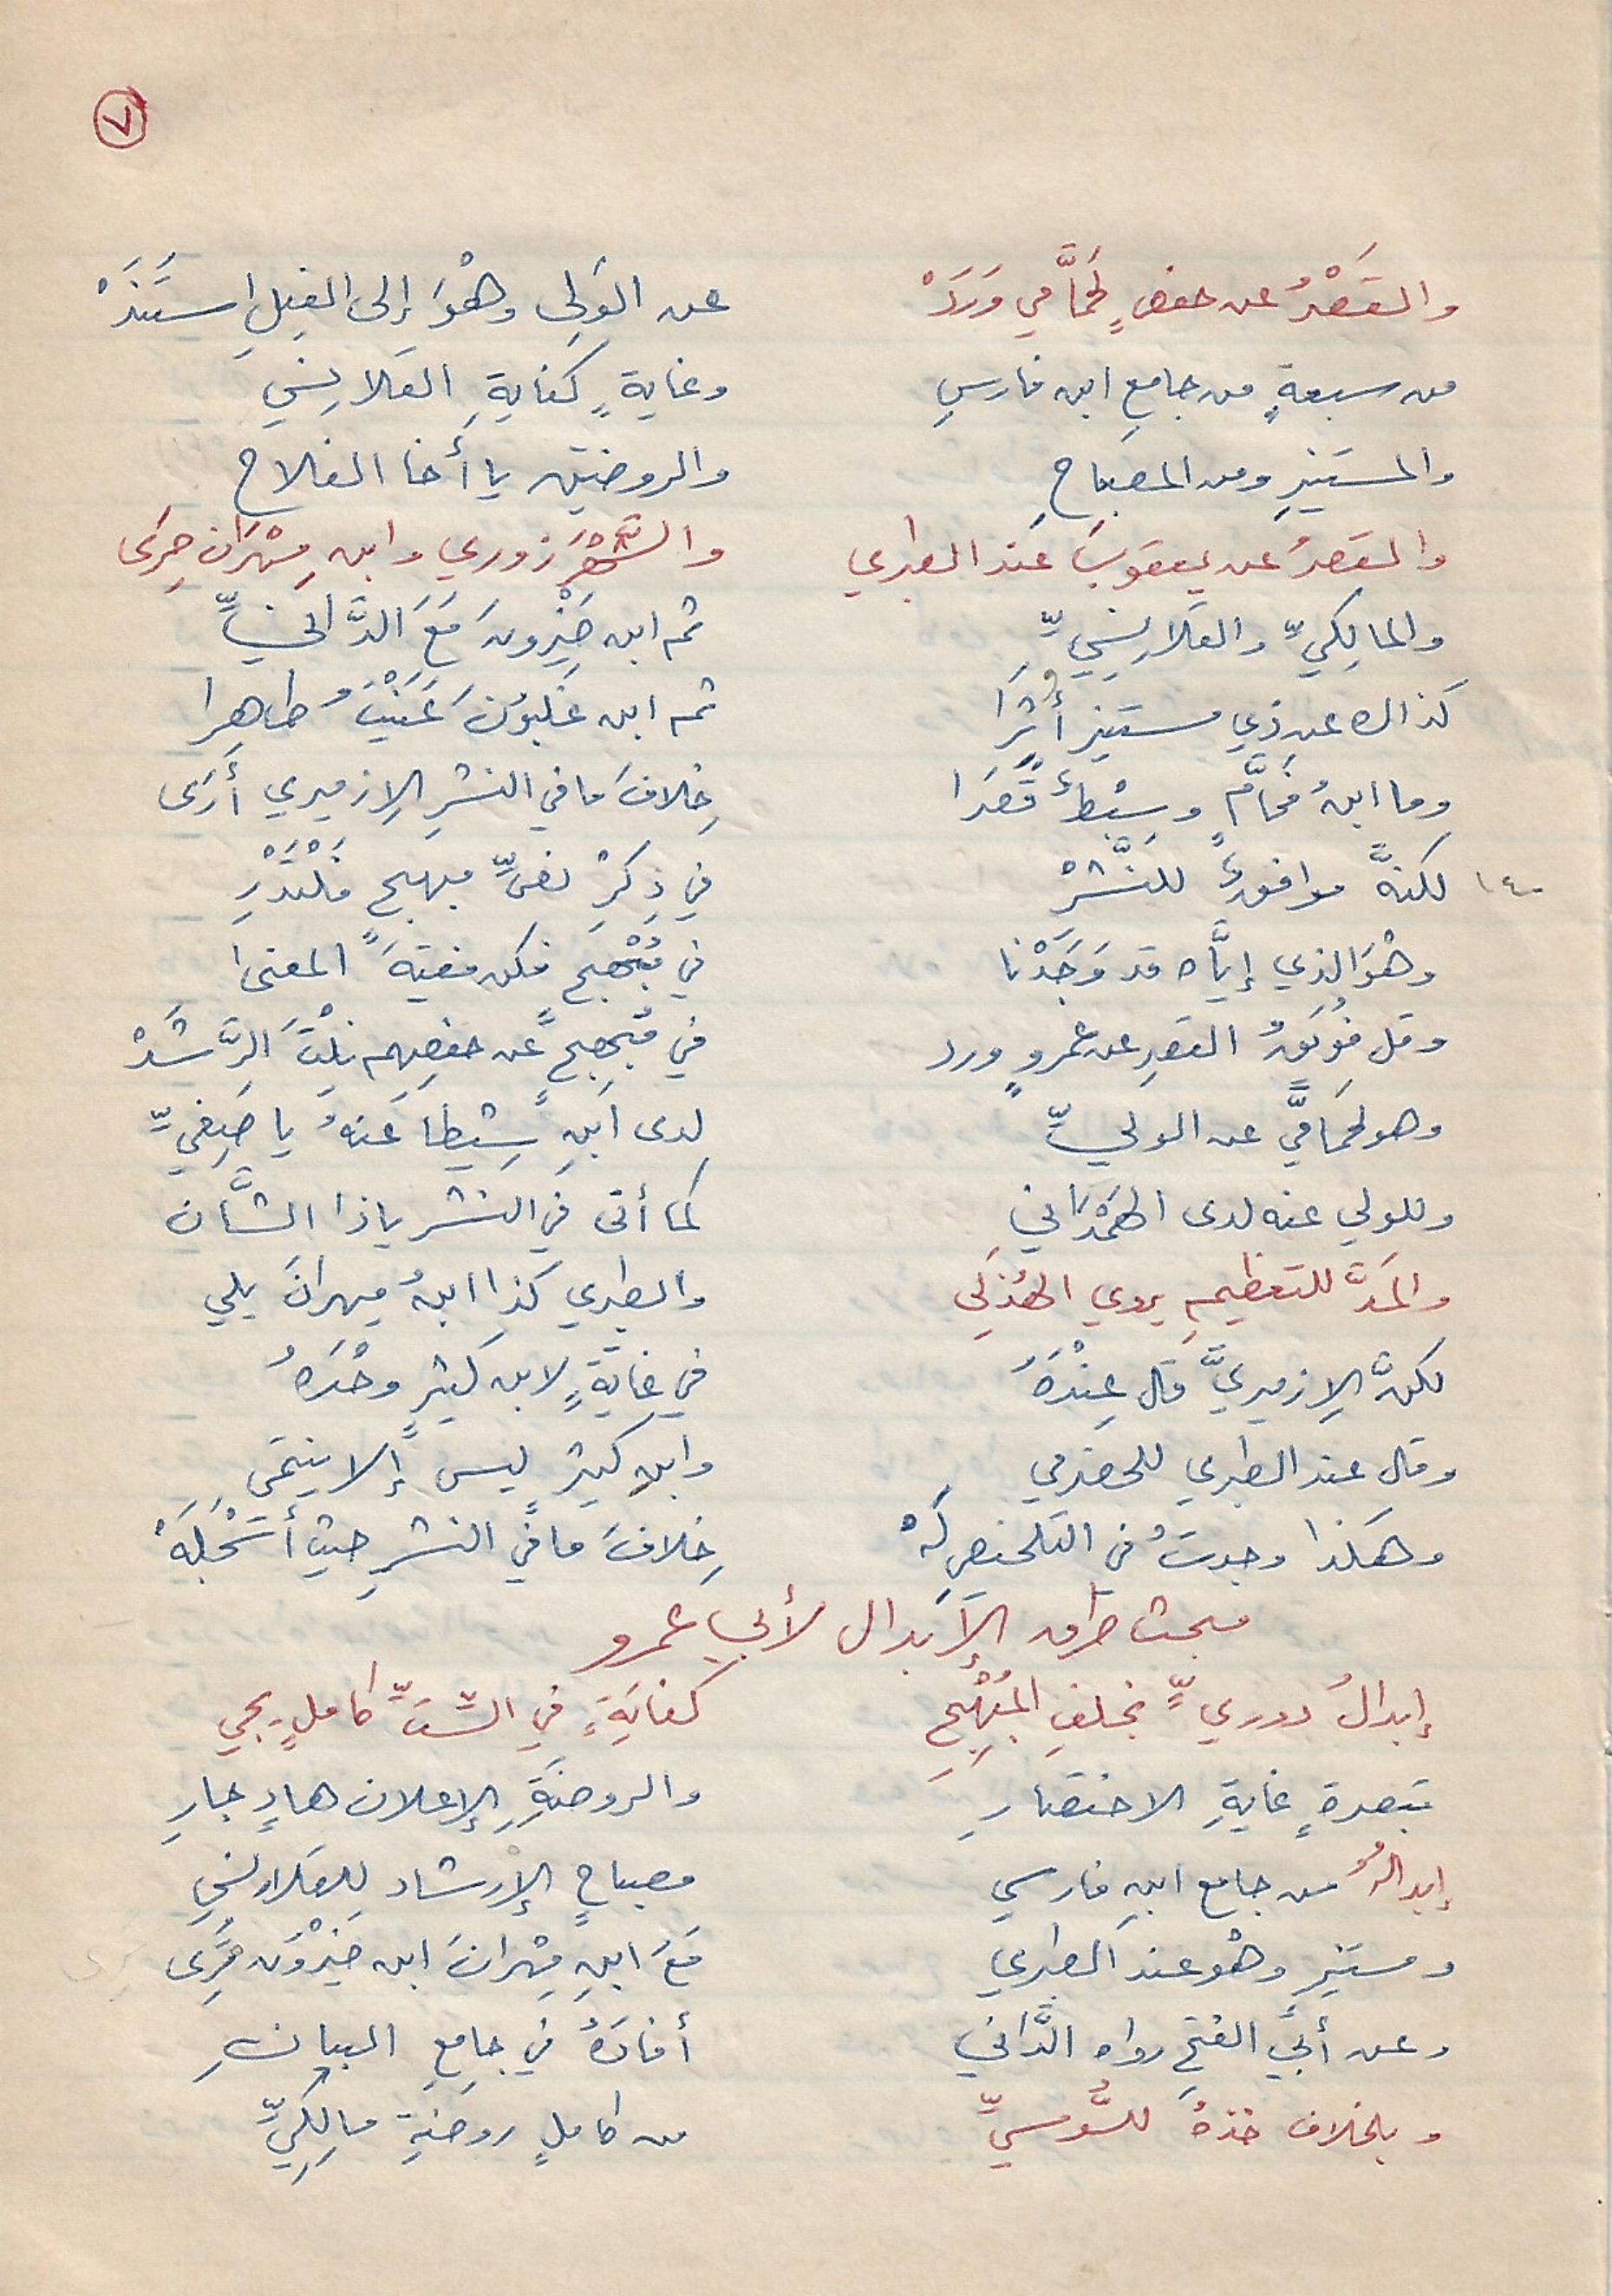 ٧
والقَصْرُ عن حفصٍ لحمَّامي وَرَدَْ عن الوَلِي وهْوَ إلى الفِيلِ اسْتَنَدَْ
من سبعةٍ من جامعِ ابن فارسِ وغايةٍ كفايةِ القلانِسِي
والمستنيرِ ومن المصباحِ والروضتين يا أخا الفلاح
والقصرُ عن يعقوبَ عند الطبري والشَّهْرَزوري وابن مِهْرَان حَرِي
والمالِكِيِّ والقَلانِسِيِّ ثم ابن خَيْرونَ مَعَ الدَّانيِّ
كذاك عن ذي مستنيرٍ أُثِرَا ثم ابن غَلبونَ عَنَيْتُ طاهِرا
وما ابنُ فحَّامٍ وسِبْطٌ قَصَرَا خِلافَ ما في النشرِ الإزميري أَرَى
١٤٠ لكنَّهُ موافقٌ للنَّشْرِ في ذِكْرِ نصِّ مبهجٍ فَلْتَدْرِ
وهْوَ الذي إيَّاه قد وَجَدْنا في مُبْهِجٍ فكن فقيهَ المعنى
وقل فُوَيقُ القصرِ عن عَمرٍو ورد في مُبهِجٍ عن حفصِهم نِلْتَ الرَّشَدْ
وهو لحمَّاميَّ عن الوليِّ لدى ابنِ شِيطا عنهُ يا صَفِيِّ
وللولي عنه لدى الهَمْدَاني كما أتى في النشر ياذا الشَّان
والمَدَّ للتعظيمِ يروي الهُذَلِي والطبري كذا ابنُ مِهرانَ يلي
لكنَّ الإزميريَّ قال عِنْدَهُ في غايَةٍ لابن كثيرٍ وحْدَهُ
وقال عند الطبري للحضرمي وابن كثيرٍ ليس إلا ينتمي
وهكذا وجدتُ في التلخيصِ لَهْ خِلافَ ما في النشرِ حيثُ أَسْجَلَهْ
مبحث طرق الإبدال لأبي عمرو
إبدالُ دوريٍّ بخلفِ المُبْهِجِ كفايَةٍ في السِّتِّ كاملٍ يجي
تبصرةٍ غايةِ الاختصارِ والروضَةِ الإعلان هادٍ جارِ
إبدالُهُ من جامع ابنِ فارسي مصباحٍ الإرشاد لِلقلانسي
ومستنيرٍ وهْو عند الطبري مَعَ ابنِ مِهْرانَ ابن خَيْرُونَ حَرِي
وعن أبي الفتحِ رواه الدَّاني أفادَهُ في جامِعِ البيانِ
وبالخلاف خذهُ للسُّوسيِّ من كاملٍ روضةِ مالِكِيِّ